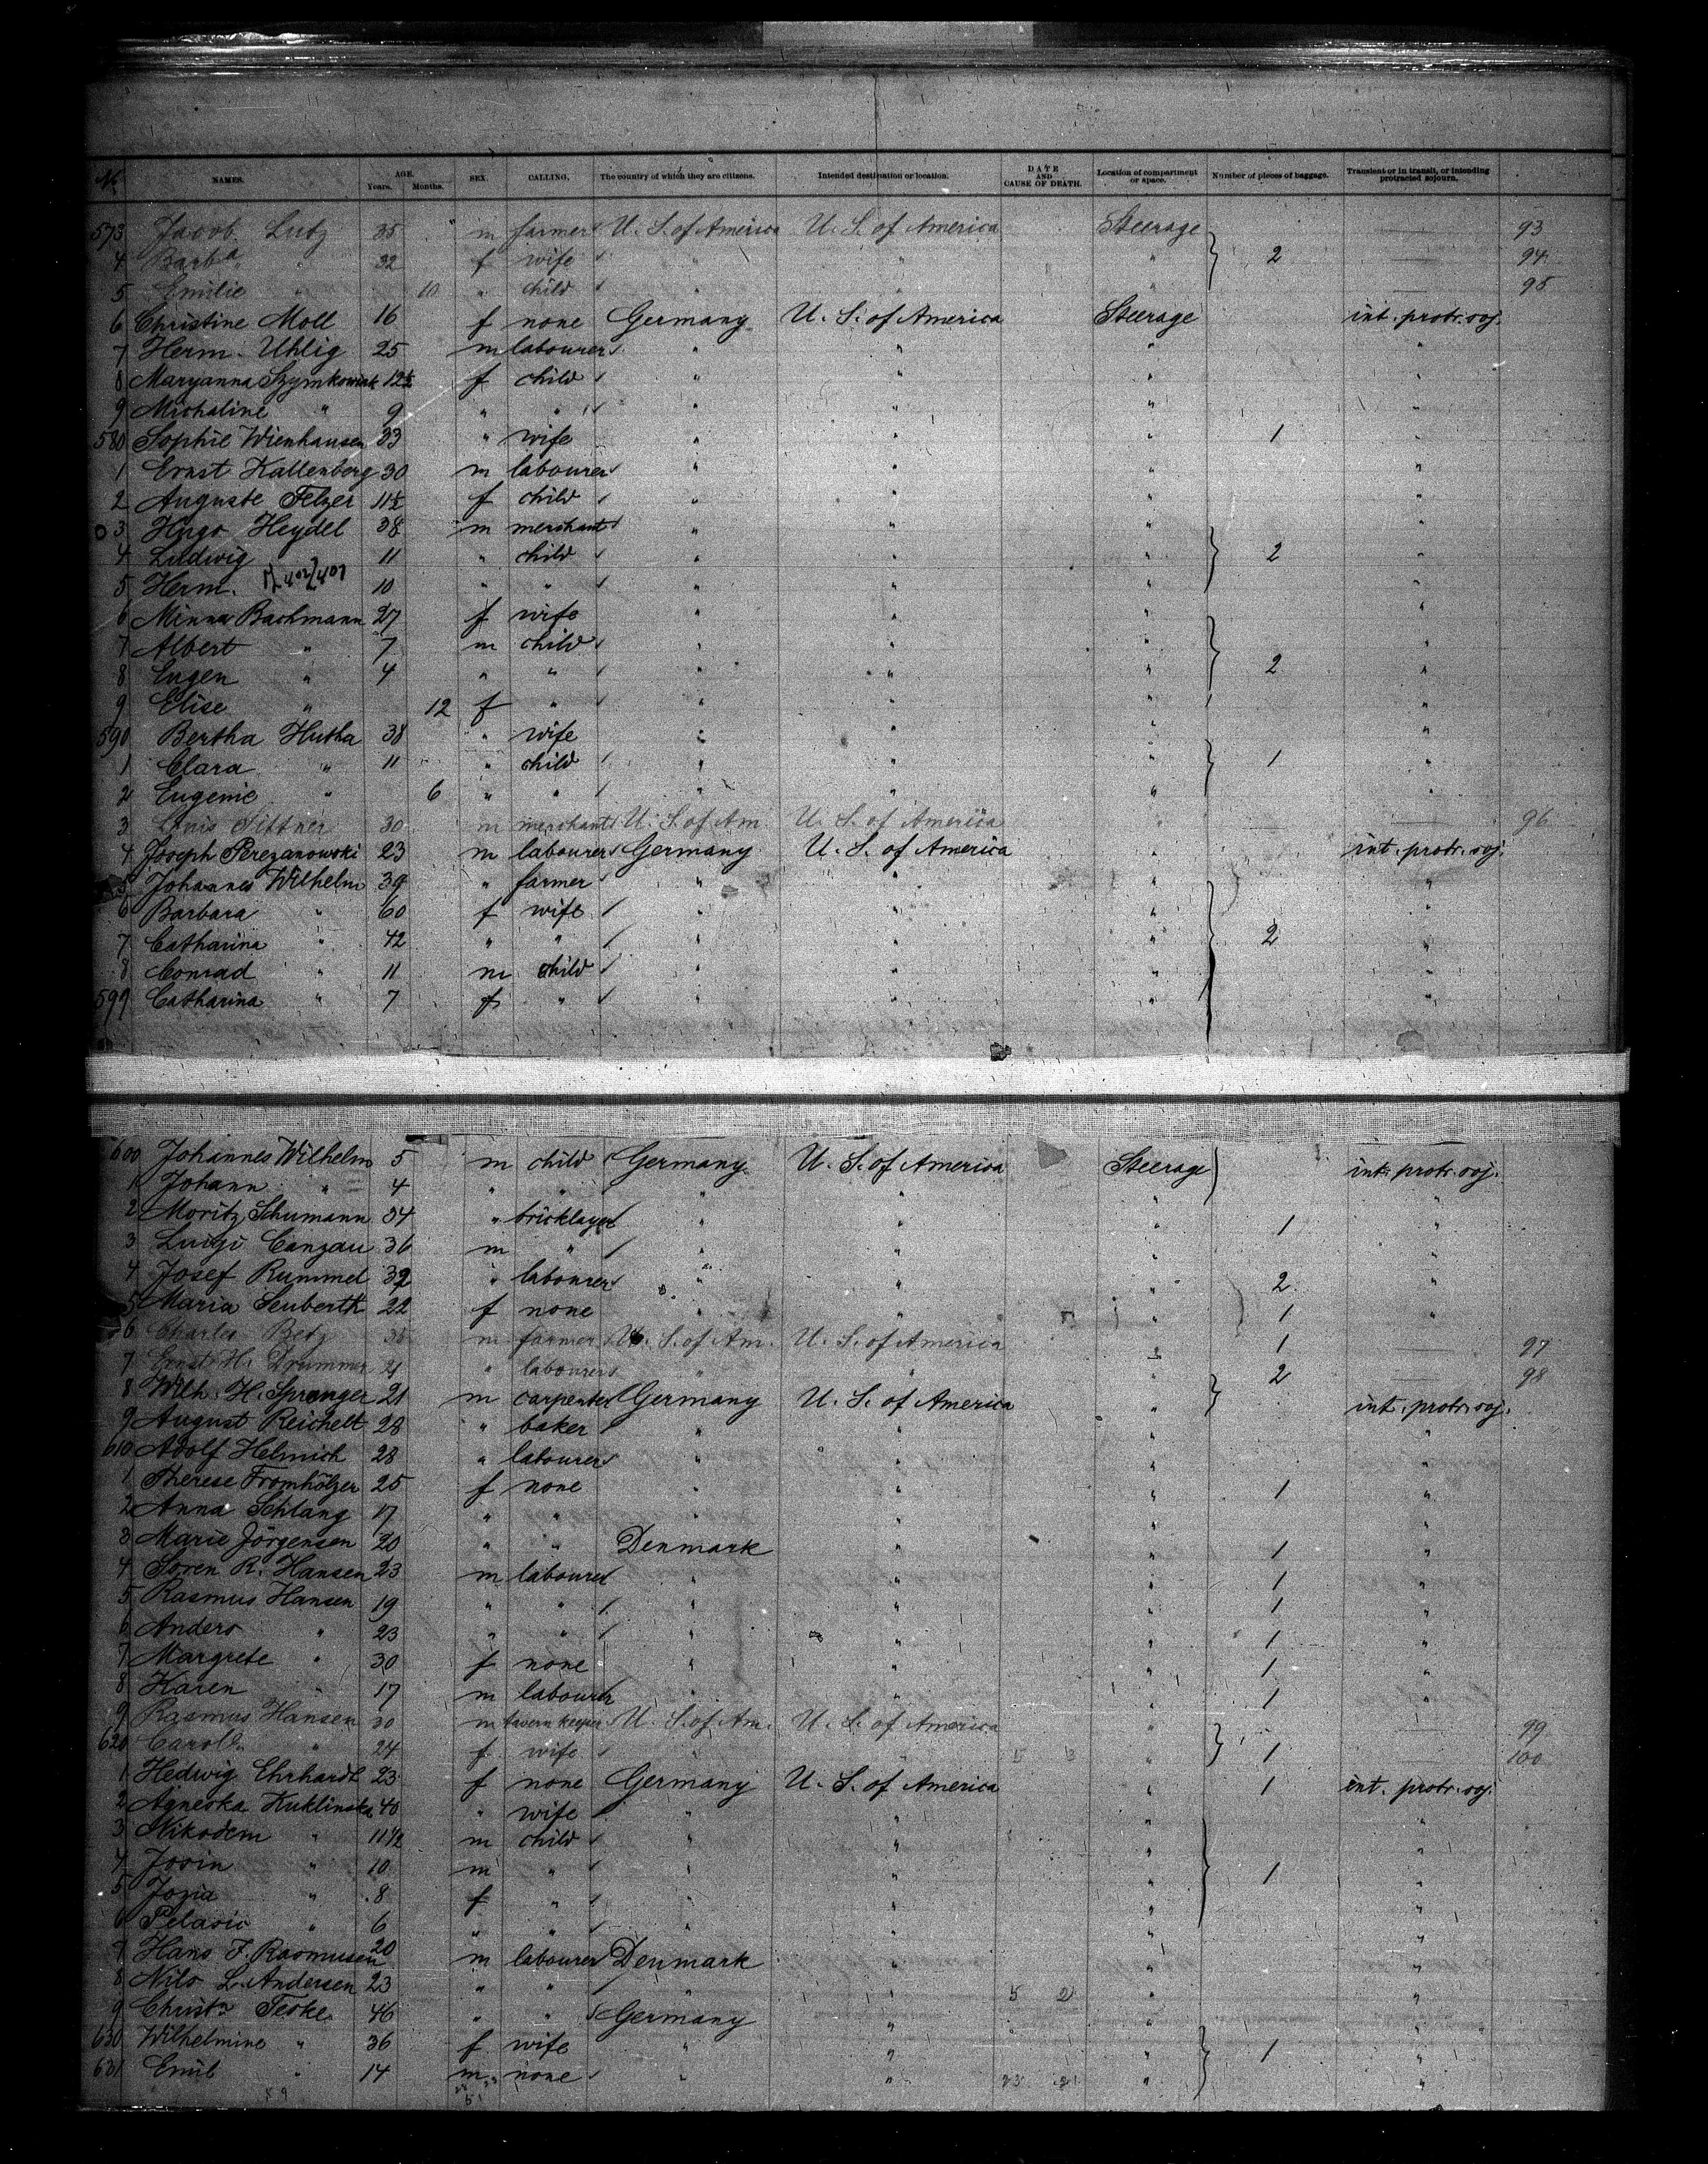 No. NAMES. AGE. Years. Months. SEX. CALLING. The country of which they are citizens. Intended destination or location. DATE AND CAUSE OF DEATH. Location of compartment or space. Number of pieces of baggage. Transient or in transit, or intending protracted sojourn.
573 Jacob Lutz 35 " m farmer U. S. of America U. S. of America Steerage — 93
4 Barba " 32 f wife " " " 2 — 94
5 Emilie " 10 " child " " " — 95
6 Christine Moll 16 f none Germany U. S. of America Steerage int. protr. soj.
7 Herm. Uhlig 25 m labourer " " " "
8 Maryanna Szymkowiak 12½ f child " " " "
9 Michaline " 9 " " " " " "
580 Sophie Wienhausen 33 " wife " " " 1 "
1 Ernst Kallenberg 30 m labourer " " " "
2 Auguste Felzer 11½ f child " " " "
3 Hugo Heydel 38 m merchant " " " "
4 Ludwig 11 " child " " " 2 "
5 Herm. 10 " " " " " "
6 Minna Bachmann 27 f wife " " " "
7 Albert " 7 m child " " " "
8 Eugen " 4 " " " " " 2 "
9 Elise " 12 f " " " " "
590 Bertha Hutha 38 " wife " " " "
1 Clara " 11 " child " " " 1 "
2 Eugenie " 6 " " " " "
3 Louis Sittner 30 m merchant U. S. of Am. U. S. of America " — 96
4 Joseph Perezanowski 23 m labourer Germany U. S. of America " int. protr. soj.
5 Johannes Wilhelm 39 " farmer " " " "
6 Barbara " 60 f wife " " " "
7 Catharina " 42 " " " " " 2 "
8 Conrad " 11 m child " " " "
599 Catharina " 7 f " " " " "
600 Johannes Wilhelm 5 m child Germany U. S. of America Steerage int. protr. soj.
1 Johann " 4 " " " " " "
2 Moritz Schumann 34 " bricklayer " " " 1 "
3 Luigi Canzau 36 m " " " "
4 Josef Rummel 32 " labourer " " " 2 "
5 Maria Seuberth 22 f none " " " 1 "
6 Charles Betz 35 m farmer U. S. of Am. U. S. of America " 1 — 97
7 Ernst H. Drummer 21 " labourer " " " 2 — 98
8 Wilh. H. Spranger 21 m carpenter Germany U. S. of America " int. protr. soj.
9 August Reichelt 28 " baker " " " "
610 Adolf Helmich 28 " labourer " " " "
1 Therese Fromhölzer 25 f none " " " 1 "
2 Anna Schlang 17 " " " " " "
3 Marie Jörgensen 20 " " Denmark " " 1 "
4 Soren R. Hansen 23 m labourer " " " 1 "
5 Rasmus Hansen 19 " " " " " 1 "
6 Anders " 23 " " " " " 1 "
7 Margrete " 30 f none " " " 1 "
8 Karen " 17 m labourer " " " 1 "
9 Rasmus Hansen 30 m tavern keeper U. S. of Am. U. S. of America " — 99
620 Carol. " 24 f wife " " " 1 — 100
1 Hedwig Ehrhardt 23 f none Germany U. S. of America " 1 int. protr. soj.
2 Agneska Kuklinska 40 " wife " " " "
3 Nikodem " 11½ m child " " " "
4 Josin " 10 m " " " " 1 "
5 Jozia " 8 f " " " " "
6 Pelasio " 6 " " " " " "
7 Hans F. Rasmusen 20 m labourer Denmark " " "
8 Nils L. Andersen 23 " " " " " "
9 Christn Teske 46 " " Germany " " "
630 Wilhelmine " 36 f wife " " " 1 "
631 Emil " 14 m none " " " "